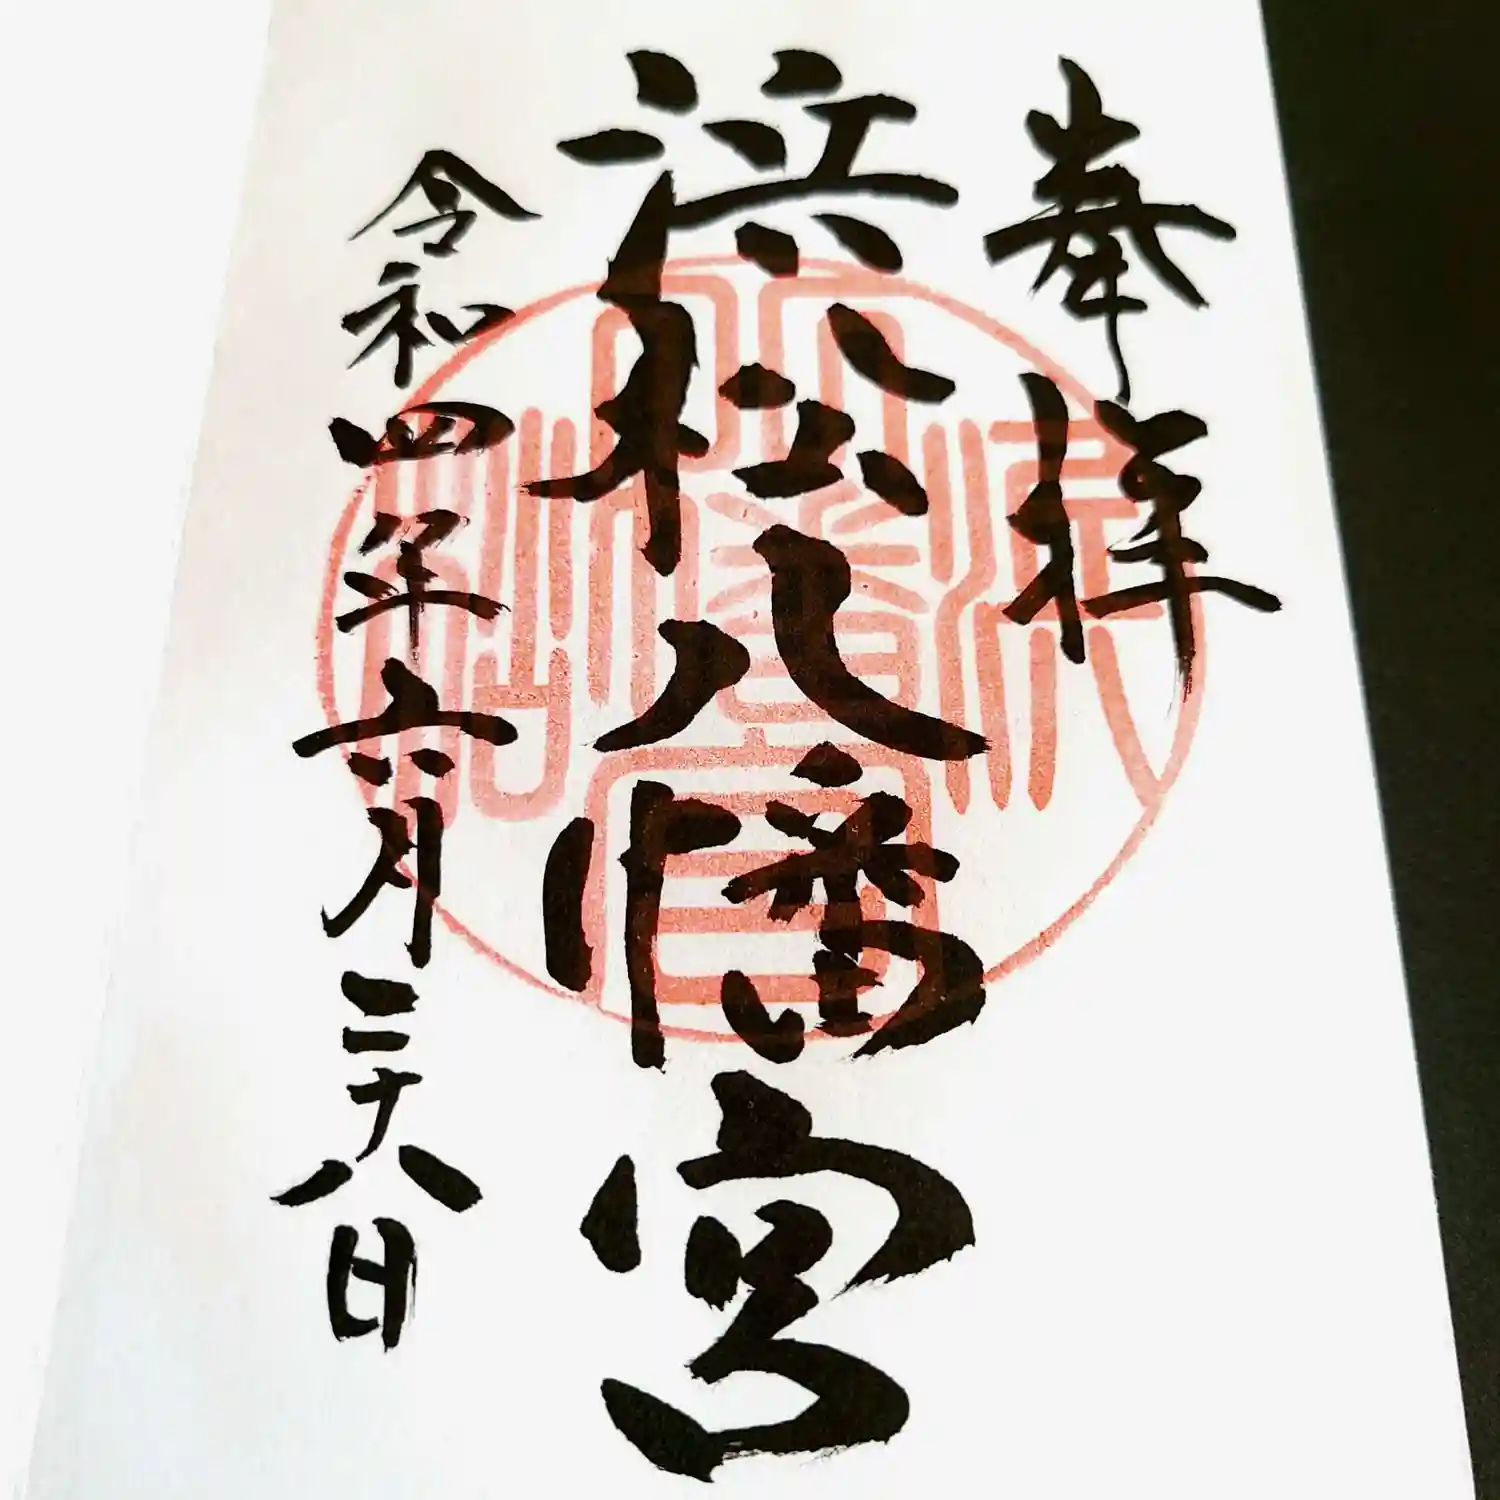 奉拝
浜松八幡宮
令和四年六月二十八日